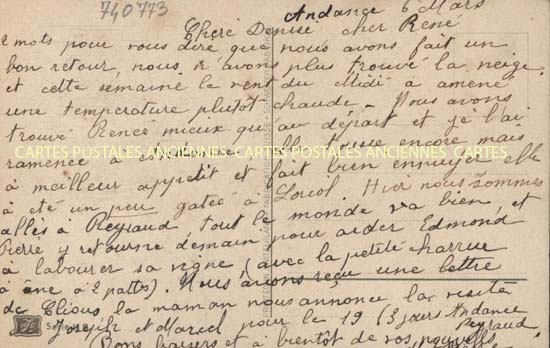 740773
Andance 6 Mars
Chère Denise, cher René
mots pour vous dire que nous avons fait un
bon retour, nous n'avons plus trouvé la neige
et cette semaine le vent du Midi a amené
une température plutôt chaude. Nous avons
trouvé Renée mieux qu'au départ et je l'ai
ramenée à elle tousse encore mais
CARTES POSTALES ANCIENNES CARTES POSTALES ANCIENNES CARTES POSTALES ANCIENNES
a meilleur appétit et fait bien elle
a été un peu gatée à Hier nous sommes
allés à Peyraud, tout le monde va bien, et
Pierre y retourne demain pour aider Edmond
à labourer sa vigne (avec la petite charrue
à âne à 2 pattes). Nous avons reçu une lettre
de la maman nous annonce la visite
Joseph et Marcel pour le 19 (3 jours Andance
Peyraud
Bons baisers et à bientôt de vos nouvelles